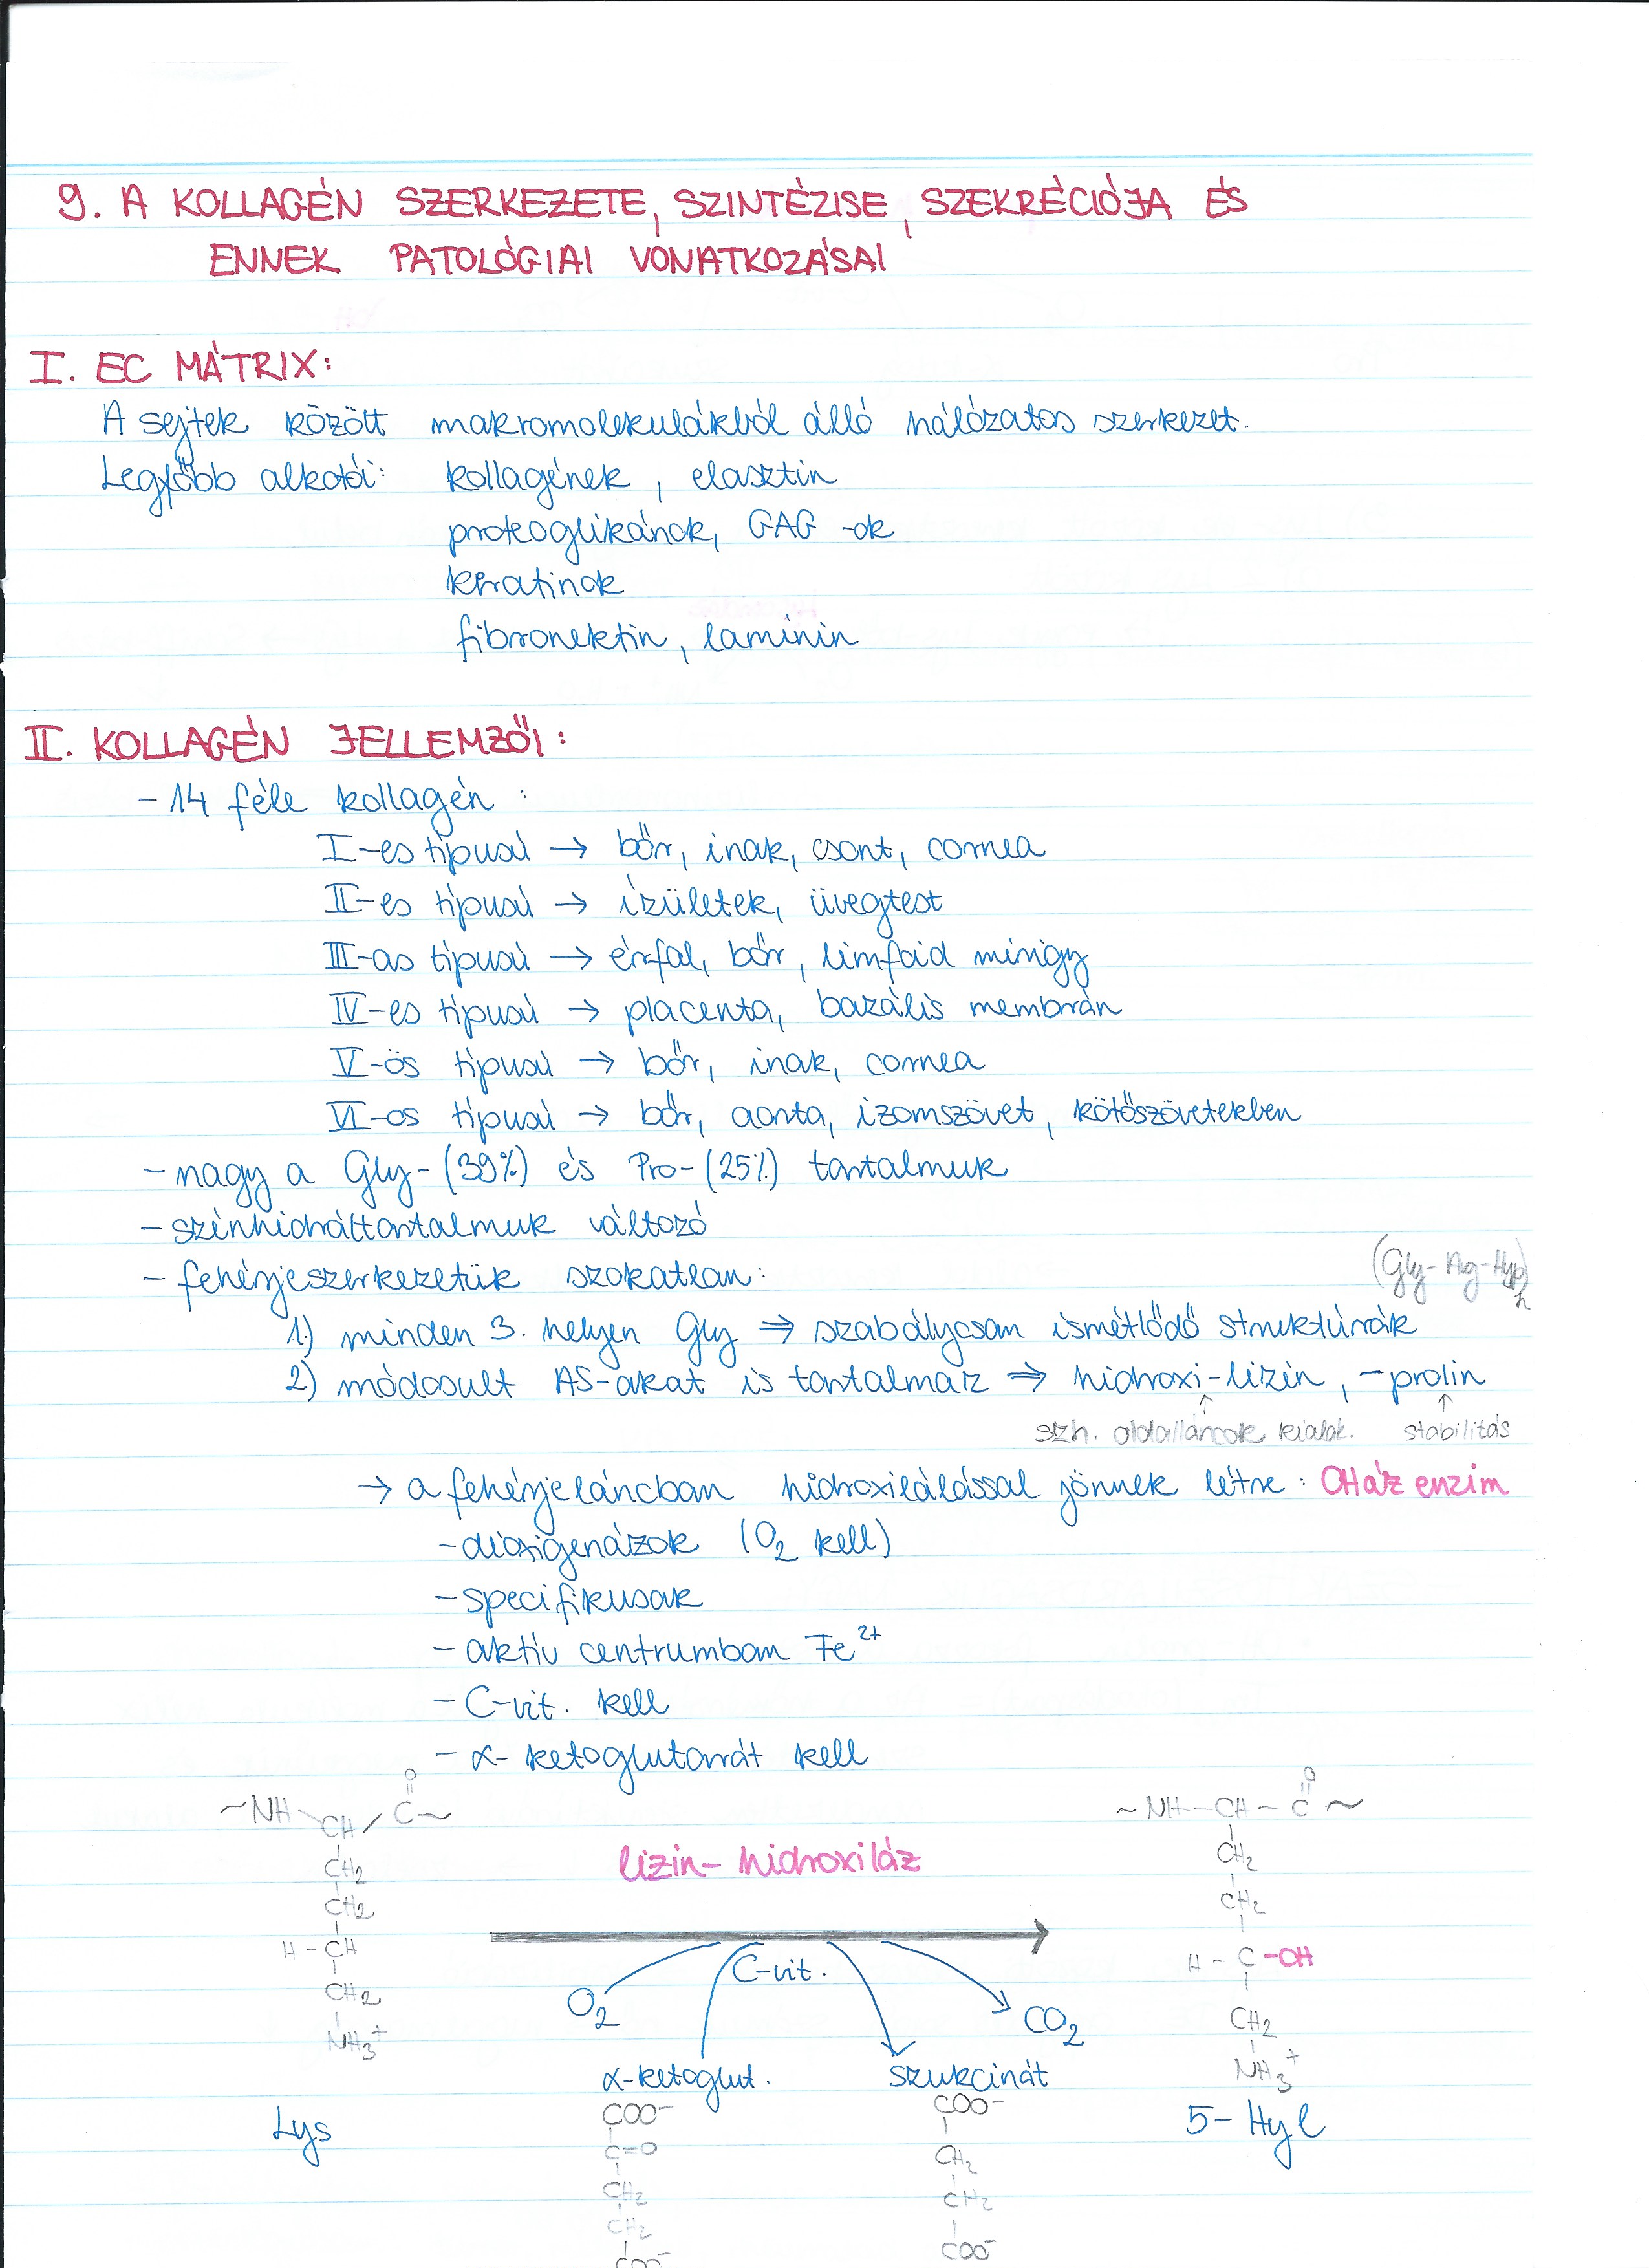 9. A KOLLAGÉN SZERKEZETE, SZINTÉZISE, SZEKRÉCIÓJA ÉS
ENNEK PATOLÓGIAI VONATKOZÁSAI
I. EC MÁTRIX:
A sejtek között makromolekulákból álló hálózatos szerkezet.
Legfőbb alkotói: kollagének, elasztin
proteoglikánok, GAG-ok
keratinok
fibronektin, laminin
II. KOLLAGÉN JELLEMZŐI:
- 14 féle kollagén:
I-es típusú → bőr, inak, csont, cornea
II-es típusú → ízületek, üvegtest
III-as típusú → érfal, bőr, limfoid mirigy
IV-es típusú → placenta, bazális membrán
V-ös típusú → bőr, inak, cornea
VI-os típusú → bőr, aorta, izomszövet, kötőszövetekben
- nagy a Gly-(39%) és Pro-(25%) tartalmuk
- szénhidráttartalmuk változó
- fehérjeszerkezetük szokatlan:
(Gly-Arg-Hyp)n
1.) minden 3. helyen Gly ⇒ szabályosan ismétlődő struktúrák
2.) módosult AS-akat is tartalmaz ⇒ hidroxi-lizin, -prolin
↑ ↑
szh. oldalláncok kialak. stabilitás
→ a fehérjeláncban hidroxilálással jönnek létre: OHáz enzim
- dioxigenázok (O2 kell)
- specifikusak
- aktív centrumban Fe2+
- C-vit. kell
- α-ketoglutarát kell
O O
~NH CH / C~ ~NH-CH-C~
lizin-hidroxiláz
CH2 CH2
CH2 CH2
H-CH H-C-OH
C-vit.
CH2 CH2
O2 CO2
NH3+ NH3+
α-ketoglut. szukcinát
Lys 5-Hyl
COO- COO-
C=O CH2
CH2 CH2
CH2 COO-
COO-